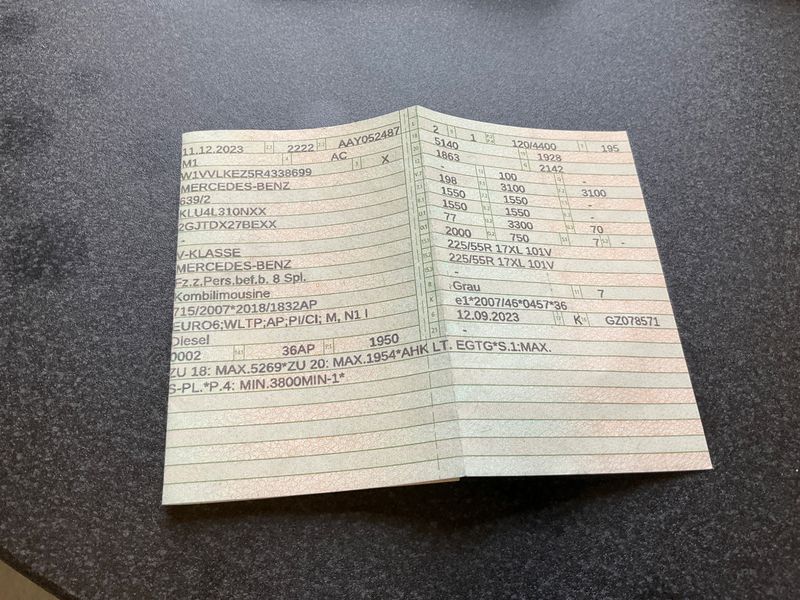 11.12.2023 2222 AAY052487
M1 AC X
W1VVLKEZ5R4338699
MERCEDES-BENZ
639/2
KLU4L310NXX
2GJTDX27BEXX
-
V-KLASSE
MERCEDES-BENZ
Fz.z.Pers.bef.b. 8 Spl.
Kombilimousine
715/2007*2018/1832AP
EURO6;WLTP;AP;PI/CI; M, N1 I
Diesel
0002 36AP 1950
ZU 18: MAX.5269*ZU 20: MAX.1954*AHK LT. EGTG*S.1:MAX.
S-PL.*P.4: MIN.3800MIN-1*
2 1 120/4400 195
5140 1928
1863 2142
198 100 -
1550 3100 3100
1550 1550 -
77 1550 -
2000 3300 70
750 7 -
225/55R 17XL 101V
225/55R 17XL 101V
-
Grau 7
e1*2007/46*0457*36
12.09.2023 K GZ078571
-